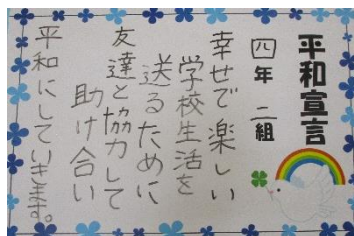 平和宣言
四年 二組
幸せで楽しい
学校生活を
送るために
友達と協力して
助け合い
平和にしていきます。